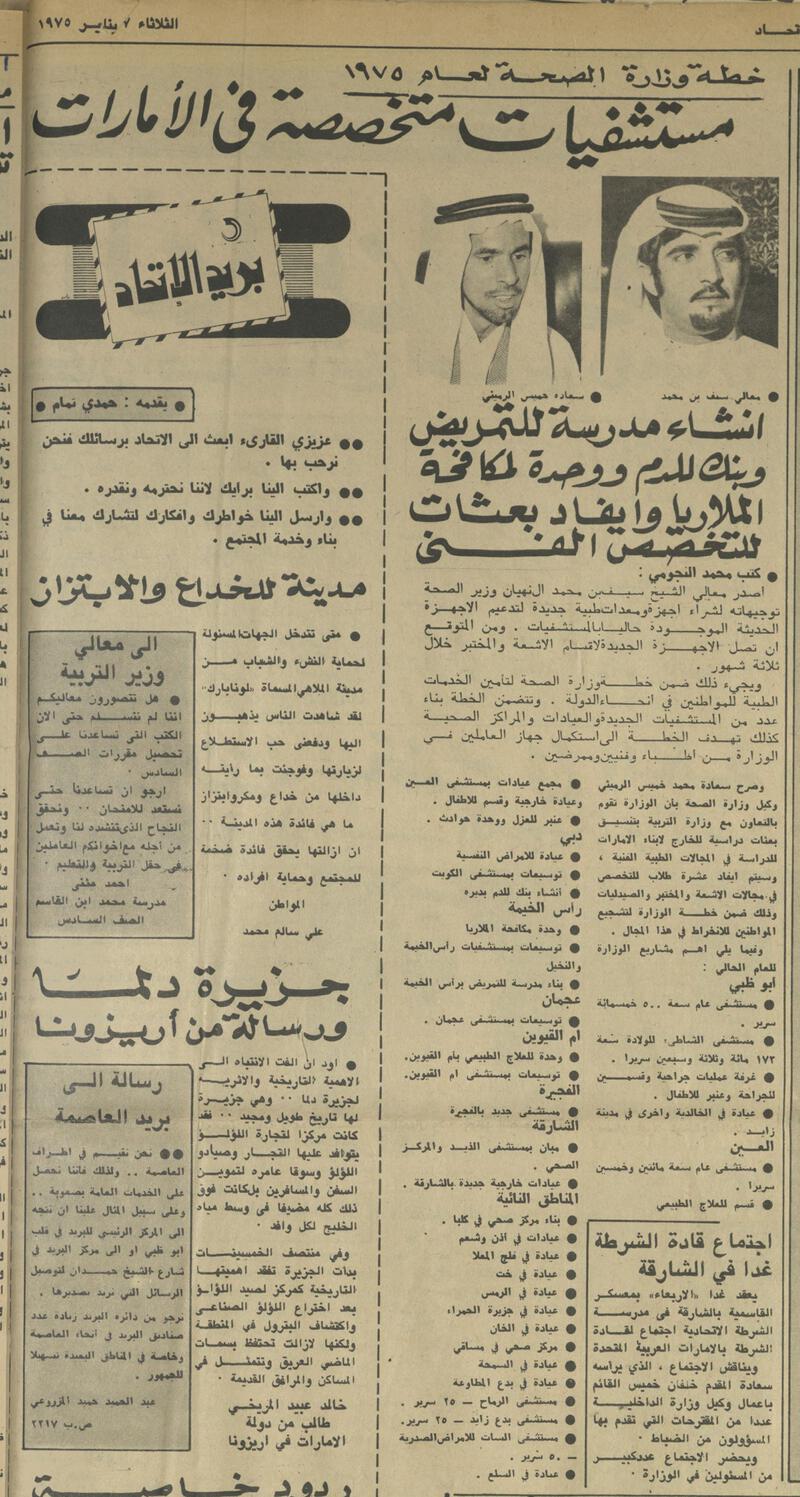 تحاد
الثلاثاء ٧ يناير ١٩٧٥
خطة وزارة الصحة لعام ١٩٧٥
مستشفيات متخصصة في الأمارات
● معالي سيف بن محمد
● سعادة خميس الرميثي
انشاء مدرسة للتمريض
وبنك للدم ووحدة لمكافحة
الملاريا وايفاد بعثات
للتخصص الفني
● كتب محمد النجومي :
اصدر معالي الشيخ سيف بن محمد ال نهيان وزير الصحة
توجيهاته لشراء اجهزة ومعدات طبية جديدة لتدعيم الاجهزة
الحديثة الموجودة حاليا بالمستشفيات . ومن المتوقع
ان تصل الاجهزة الجديدة لاقسام الاشعة والمختبر خلال
ثلاثة شهور .
ويجيء ذلك ضمن خطة وزارة الصحة لتأمين الخدمات
الطبية للمواطنين في انحاء الدولة . وتتضمن الخطة بناء
عدد من المستشفيات الجديدة والعيادات والمراكز الصحية
كذلك تهدف الخطة الى استكمال جهاز العاملين في
الوزارة من اطباء وفنيين وممرضين .
وصرح سعادة محمد خميس الرميثي
وكيل وزارة الصحة بان الوزارة تقوم
بالتعاون مع وزارة التربية بتنسيق
بعثات دراسية للخارج لابناء الامارات
للدراسة في المجالات الطبية الفنية ،
وسيتم ايفاد عشرة طلاب للتخصص
في مجالات الاشعة والمختبر والصيدليات
وذلك ضمن خطة الوزارة لتشجيع
المواطنين للانخراط في هذا المجال .
وفيما يلي اهم مشاريع الوزارة
للعام الحالي :
أبو ظبي
● مستشفى عام سعة ٥٠٠ خمسمائة
سرير .
● مستشفى الشاطىء للولادة سعة
١٧٣ مائة وثلاثة وسبعين سريرا .
● غرفة عمليات جراحية وقسمين
للجراحة وعنبر للاطفال .
● عيادة في الخالدية واخرى في مدينة
زايد .
العين
● مستشفى عام سعة مائتين وخمسين
سريرا .
● قسم للعلاج الطبيعي
● مجمع عيادات بمستشفى العين
وعيادة خارجية وقسم للاطفال .
● عنبر للعزل ووحدة حوادث .
دبي
● عيادة للامراض النفسية
● توسيعات بمستشفى الكويت
● أنشاء بنك للدم بديره
رأس الخيمة
● وحدة مكافحة الملاريا
● توسيعات بمستشفيات راس الخيمة
والنخيل
● بناء مدرسة للتمريض برأس الخيمة
عجمان
● توسيعات بمستشفى عجمان .
ام القيوين
● وحدة للعلاج الطبيعي بام القيوين.
● توسيعات بمستشفى ام القيوين.
الفجيرة
● مستشفى جديد بالفجيرة
الشارقة
● مبان بمستشفى الذيد والمركز
الصحي .
● عيادات خارجية جديدة بالشارقة .
المناطق النائية
● بناء مركز صحي في كلبا .
● عيادات في اذن وشعم
● عيادة في فلج المعلا
● عيادة في خت
● عيادة في الرمس
● عيادة في جزيرة الحمراء
● عيادة في الخان
● مركز صحي في مسافي
● عيادة في السمحة
● عيادة في بدع المطاوعة
● مستشفى الرماح — ٢٥ سرير .
● مستشفى بدع زايد — ٢٥ سرير.
● مستشفى السات للامراض الصدرية
— ٥٠ سرير .
● عيادة في السلع .
اجتماع قادة الشرطة
غدا في الشارقة
يعقد غدا «الاربعاء» بمعسكر
القاسمية بالشارقة في مدرسة
الشرطة الاتحادية اجتماع لقادة
الشرطة بالامارات العربية المتحدة
ويناقش الاجتماع ، الذي يرأسه
سعادة المقدم خلفان خميس القائم
باعمال وكيل وزارة الداخلية
عددا من المقترحات التي تقدم بها
المسؤولون من الضباط .
ويحضر الاجتماع عدد كبير
من المسئولين في الوزارة .
بريد الاتحاد
● يقدمه : حمدي تمام ●
●● عزيزي القارىء ابعث الى الاتحاد برسائلك فنحن
نرحب بها .
●● واكتب الينا برايك لاننا نحترمه ونقدره .
●● وارسل الينا خواطرك وافكارك لتشارك معنا في
بناء وخدمة المجتمع .
مدينة للخداع والابتزاز
● متى تتدخل الجهات المسئولة
لحماية النشء والشباب من
مدينة الملاهي المسماة «لونابارك»
لقد شاهدت الناس يذهبون
اليها ودفعني حب الاستطلاع
لزيارتها وفوجئت بما رايته
داخلها من خداع ومكر وابتزاز
ما هي فائدة هذه المدينة ..
ان ازالتها يحقق فائدة ضخمة
للمجتمع وحماية افراده .
المواطن
علي سالم محمد
الى معالي
وزير التربية
● هل تتصورون معاليكم
اننا لم نتسلم حتى الان
الكتب التي تساعدنا على
تحصيل مقررات الصف
السادس .
ارجو ان تساعدنا حتى
نستعد للامتحان .. ونحقق
النجاح الذي تنشده لنا وتعمل
من أجله مع اخوانكم العاملين
في حقل التربية والتعليم .
احمد مثنى
مدرسة محمد ابن القاسم
الصف السادس
جزيرة دلما
ورسالة من أريزونا
● اود ان الفت الانتباه الى
الاهمية التاريخية والاثرية
لجزيرة دلما .. وهي جزيرة
لها تاريخ طويل ومجيد .. فقد
كانت مركزا لتجارة اللؤلؤ
يتوافد عليها التجار وصيادو
اللؤلؤ وسوقا عامره لتموين
السفن والمسافرين بل كانت فوق
ذلك كله مضيفا في وسط مياه
الخليج لكل وافد .
وفي منتصف الخمسينات
بدات الجزيرة تفقد اهميتها
التاريخية كمركز لصيد اللؤلؤ
بعد اختراع اللؤلؤ الصناعي
واكتشاف البترول في المنطقة
ولكنها لازالت تحتفظ بسمات
الماضي العريق وتتمثل في
المساكن والمرافق القديمة .
خالد عبيد المريخي
طالب من دولة
الامارات في اريزونا
رسالة الى
بريد العاصمة
●● نحن نقيم في اطراف
العاصمة .. ولذلك فاننا نحصل
على الخدمات العامة بصعوبة ..
وعلى سبيل المثال علينا ان نتجه
الى المركز الرئيسي للبريد في قلب
ابو ظبي او الى مركز البريد في
شارع الشيخ حمدان لتوصيل
الرسائل التي نريد تصديرها .
نرجو من دائرة البريد زيادة عدد
صناديق البريد في أنحاء العاصمة
وخاصة في المناطق البعيدة تسهيلا
للجمهور .
عبد الحميد حميد المزروعي
ص.ب ٢٢١٧
ردود خاصة